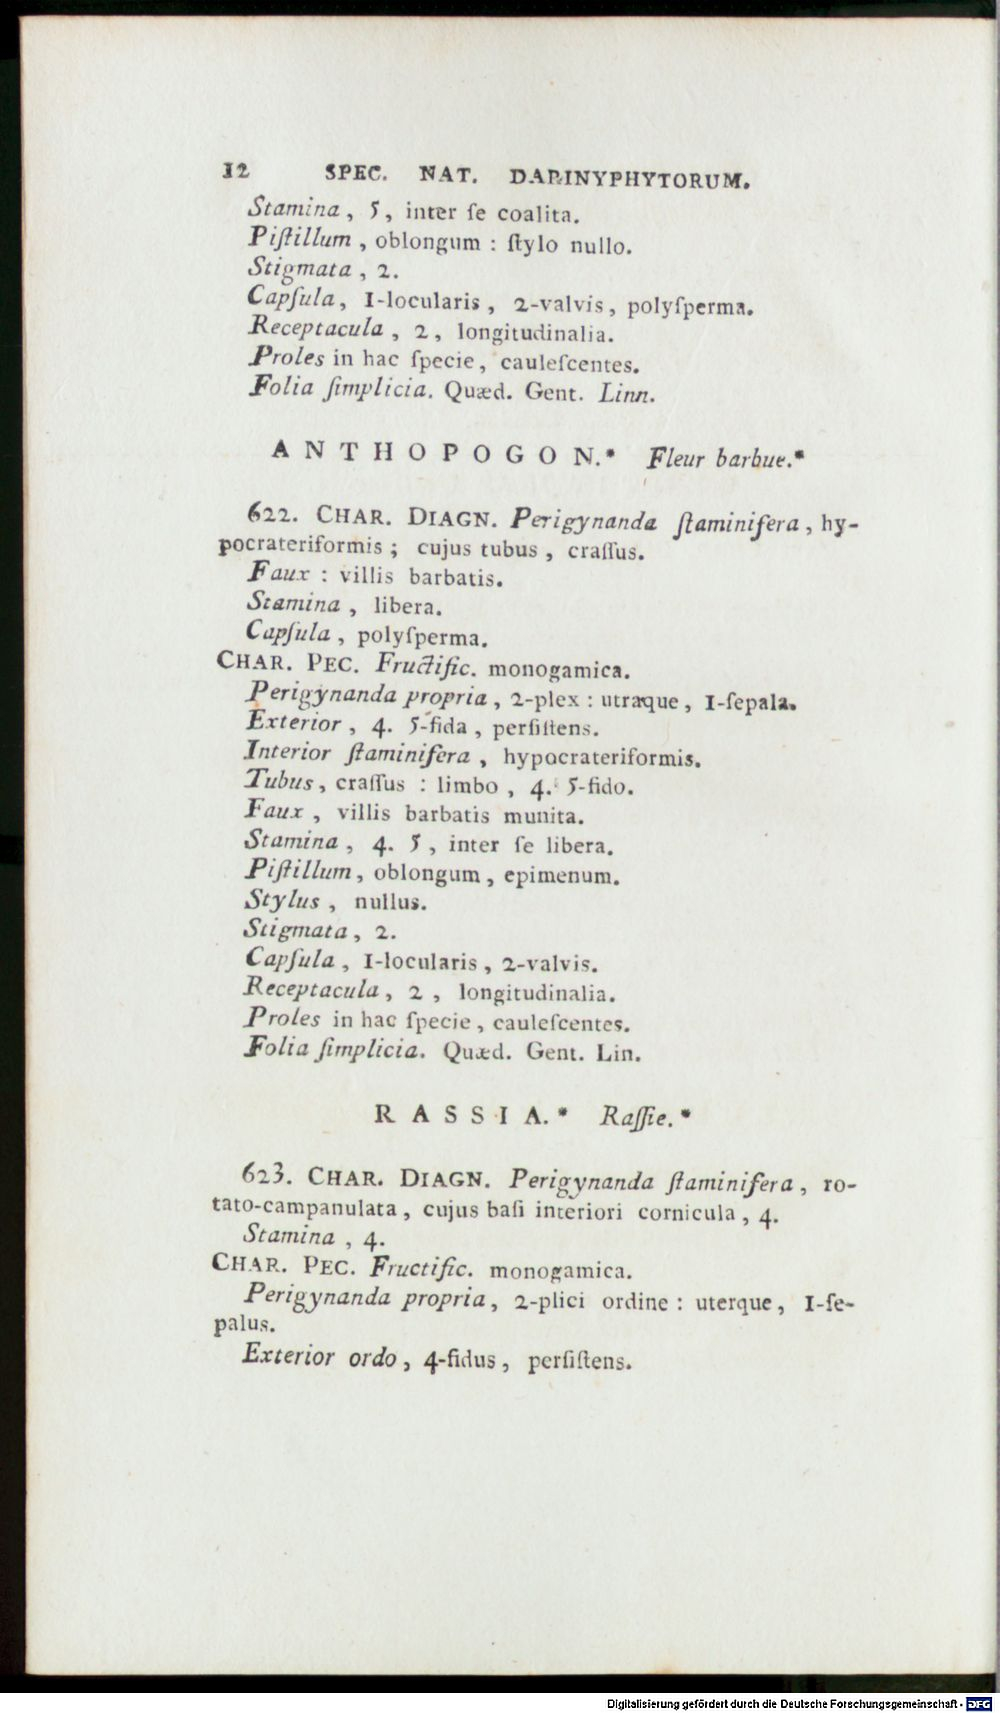 12 SPEC. NAT. DARINYPHYTORUM.
Stamina, 5, inter ſe coalita.
Piſtillum, oblongum : ſtylo nullo.
Stigmata, 2.
Capſula, 1-locularis, 2-valvis, polyſperma.
Receptacula, 2, longitudinalia.
Proles in hac ſpecie, cauleſcentes.
Folia ſimplicia. Quæd. Gent. Linn.
ANTHOPOGON.* Fleur barbue.*
622. CHAR. DIAGN. Perigynanda ſtaminifera, hy-
pocrateriformis ; cujus tubus, craſſus.
Faux : villis barbatis.
Stamina, libera.
Capſula, polyſperma.
CHAR. PEC. Fructific. monogamica.
Perigynanda propria, 2-plex : utraque, 1-ſepala.
Exterior, 4. 5-fida, perſiſtens.
Interior ſtaminifera, hypocrateriformis.
Tubus, craſſus : limbo, 4. 5-fido.
Faux, villis barbatis munita.
Stamina, 4. 5, inter ſe libera.
Piſtillum, oblongum, epimenum.
Stylus, nullus.
Stigmata, 2.
Capſula, 1-locularis, 2-valvis.
Receptacula, 2, longitudinalia.
Proles in hac ſpecie, cauleſcentes.
Folia ſimplicia. Quæd. Gent. Lin.
RASSIA.* Raſſie.*
623. CHAR. DIAGN. Perigynanda ſtaminifera, ro-
tato-campanulata, cujus baſi interiori cornicula, 4.
Stamina, 4.
CHAR. PEC. Fructific. monogamica.
Perigynanda propria, 2-plici ordine : uterque, 1-ſe-
palus.
Exterior ordo, 4-fidus, perſiſtens.
Digitalisierung gefördert durch die Deutsche Forschungsgemeinschaft - DFG